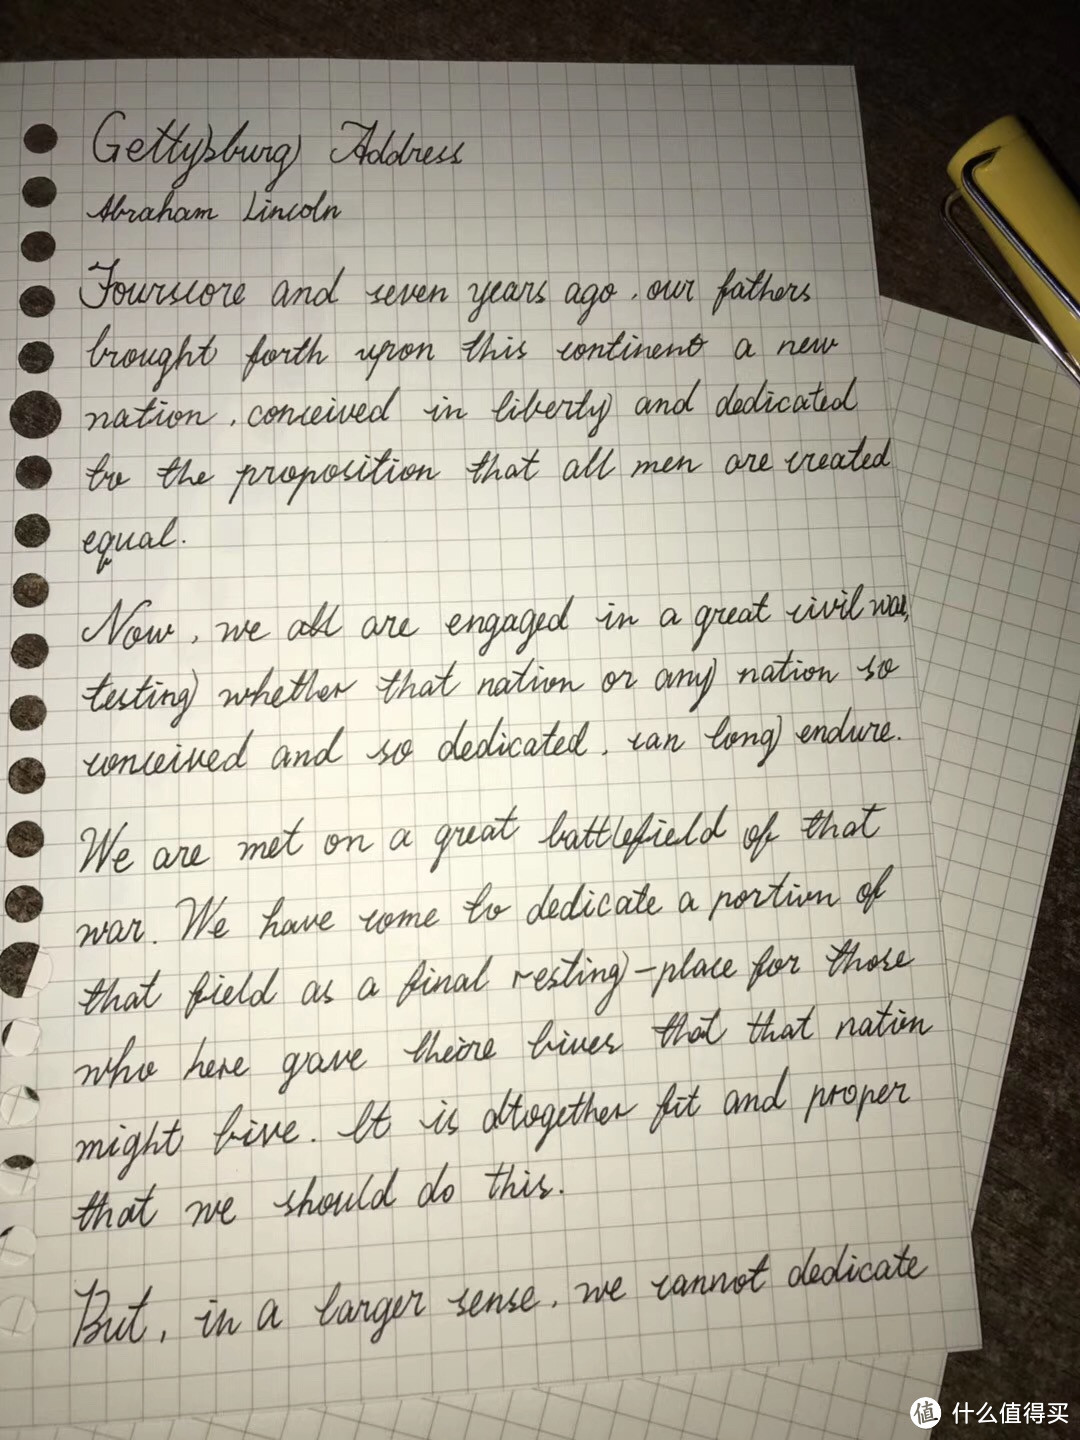 Gettysburg Address
Abraham Lincoln
Fourscore and seven years ago, our fathers
brought forth upon this continent a new
nation, conceived in liberty and dedicated
to the proposition that all men are created
equal.
Now, we all are engaged in a great civil war,
testing whether that nation or any nation so
conceived and so dedicated, can long endure.
We are met on a great battlefield of that
war. We have come to dedicate a portion of
that field as a final resting-place for those
who here gave theire lives that that nation
might live. It is altogether fit and proper
that we should do this.
But, in a larger sense, we cannot dedicate
值 什么值得买